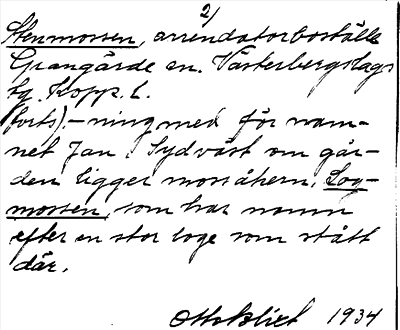 2/
Stenmossen, arrendatorboställe
Grangärde sn. Västerbergslags
tg. Kopp. l.
(forts).–ning med för nam-
net Jan. Sydväst om går-
den ligger mossåkern, Log-
mossen, som har namn
efter en stor loge som stått
där.
Otto Blixt 1934